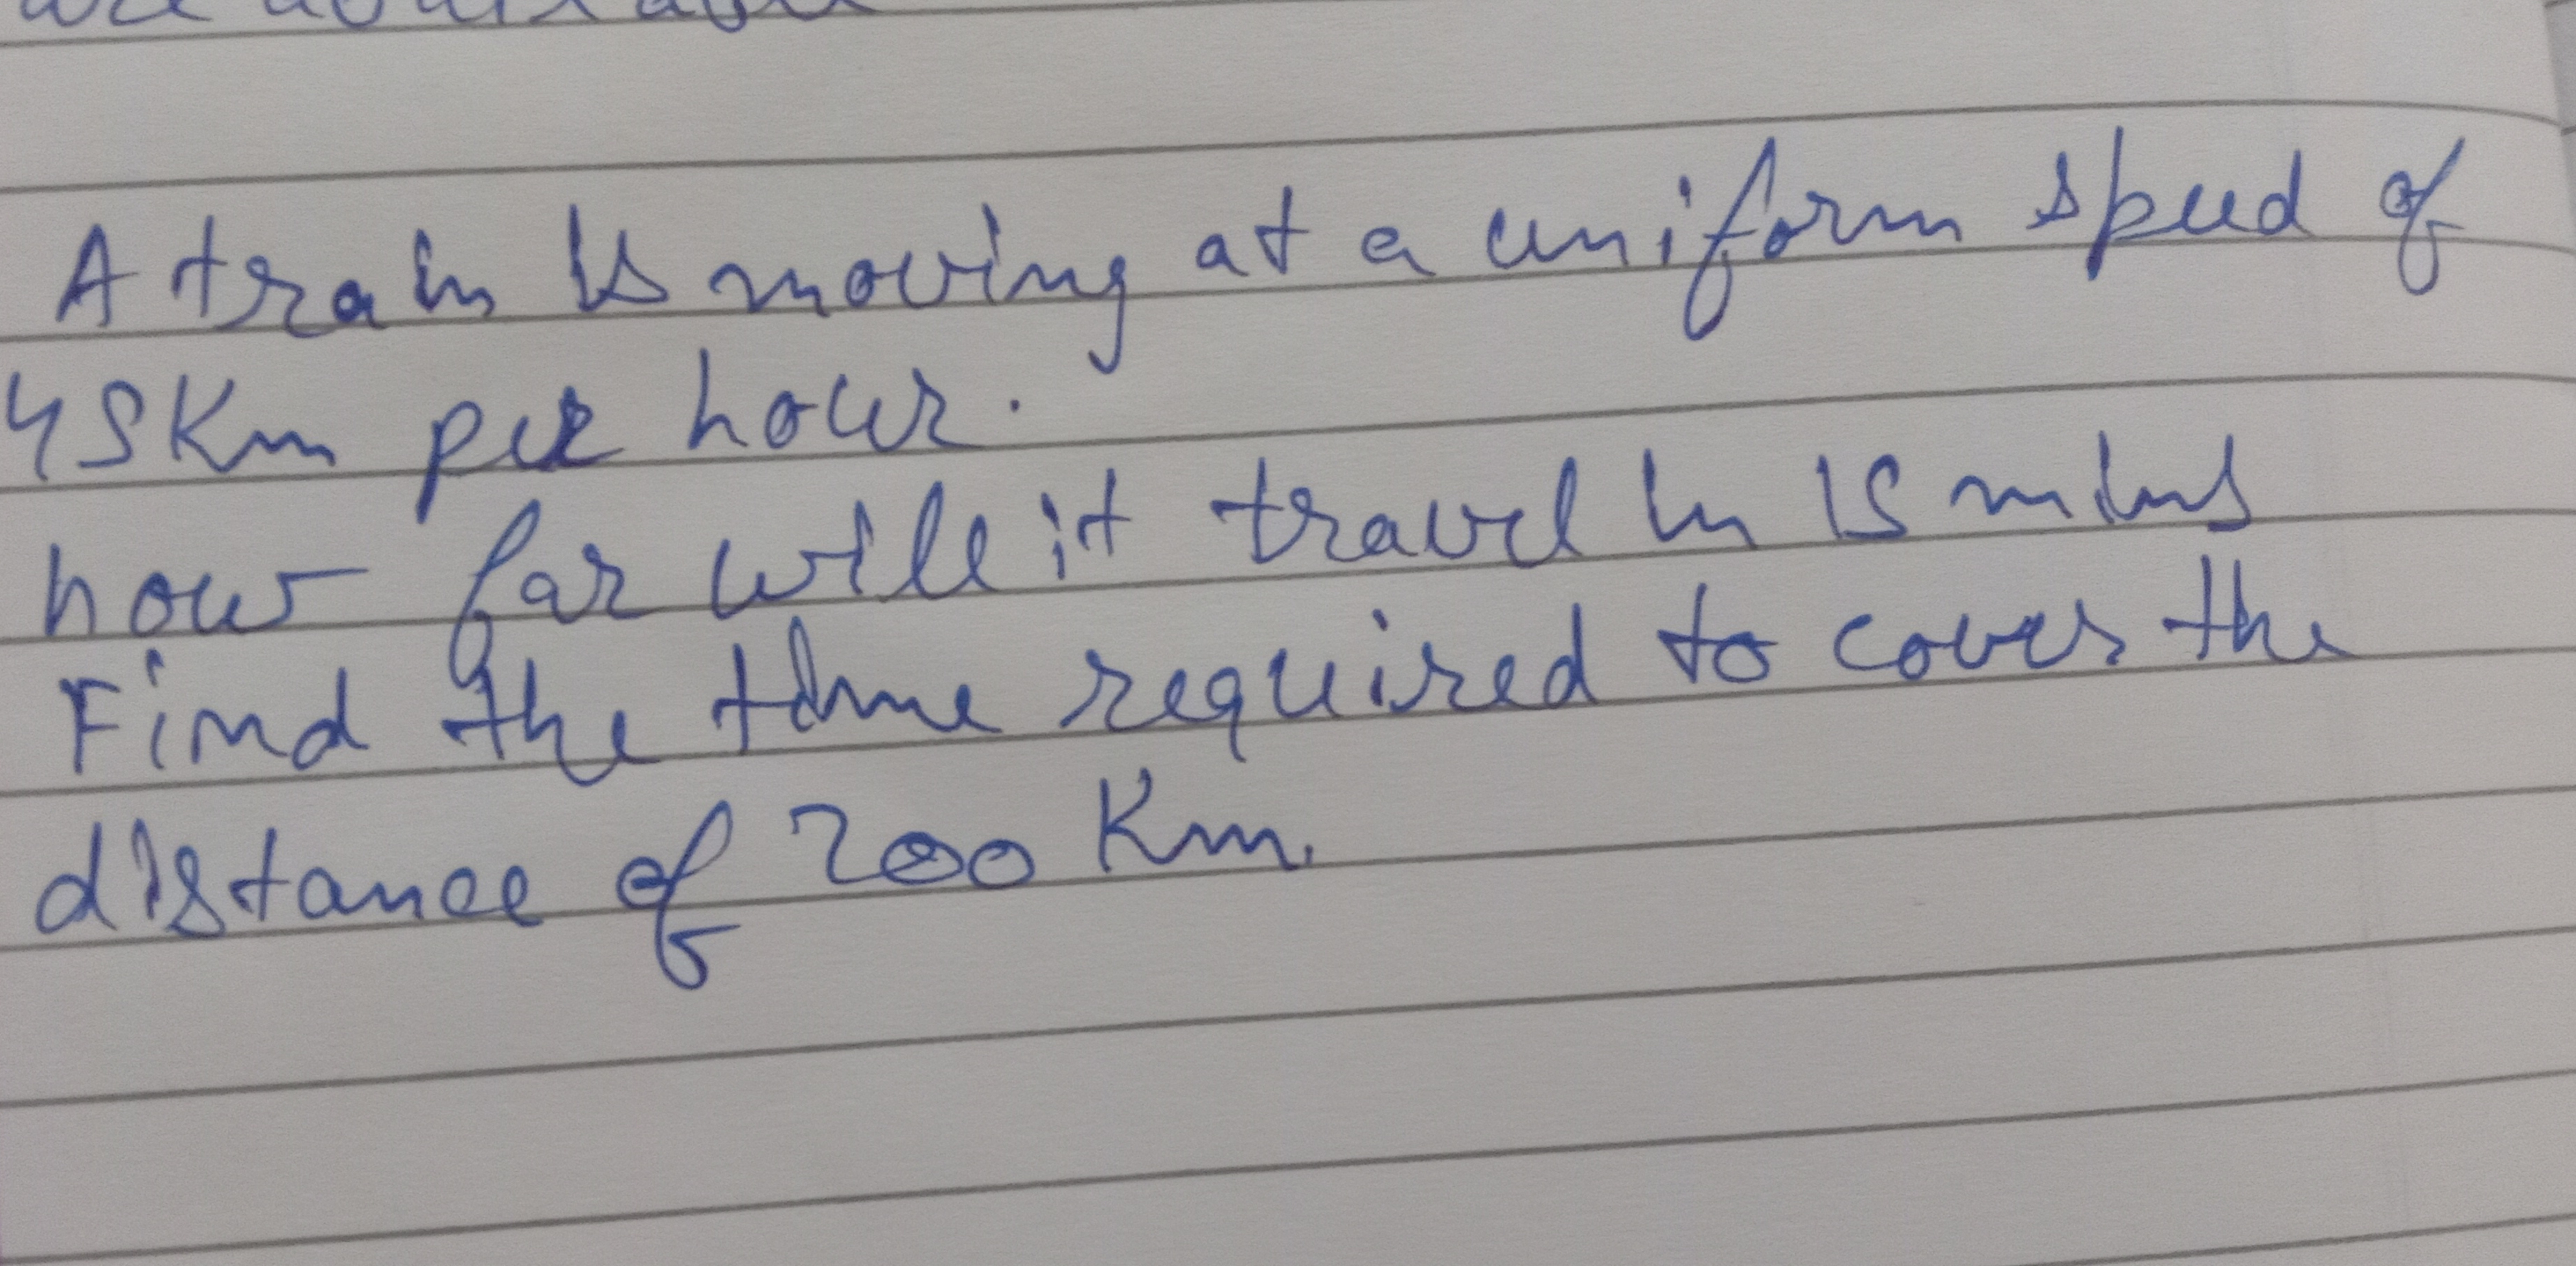 A train is moving at a uniform speed of
45 Km per hour.
how far will it travel in 15 mins
Find the time required to cover the
distance of 200 Km.